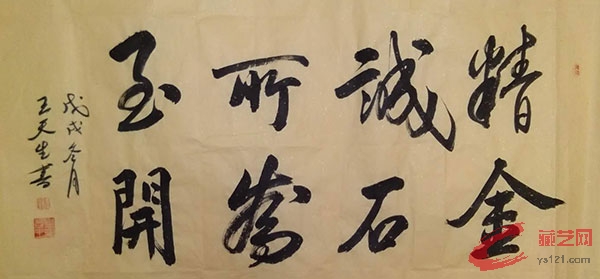 精誠所至
金石為開
戊戌冬月
王天生書
藏艺网
ys121.com